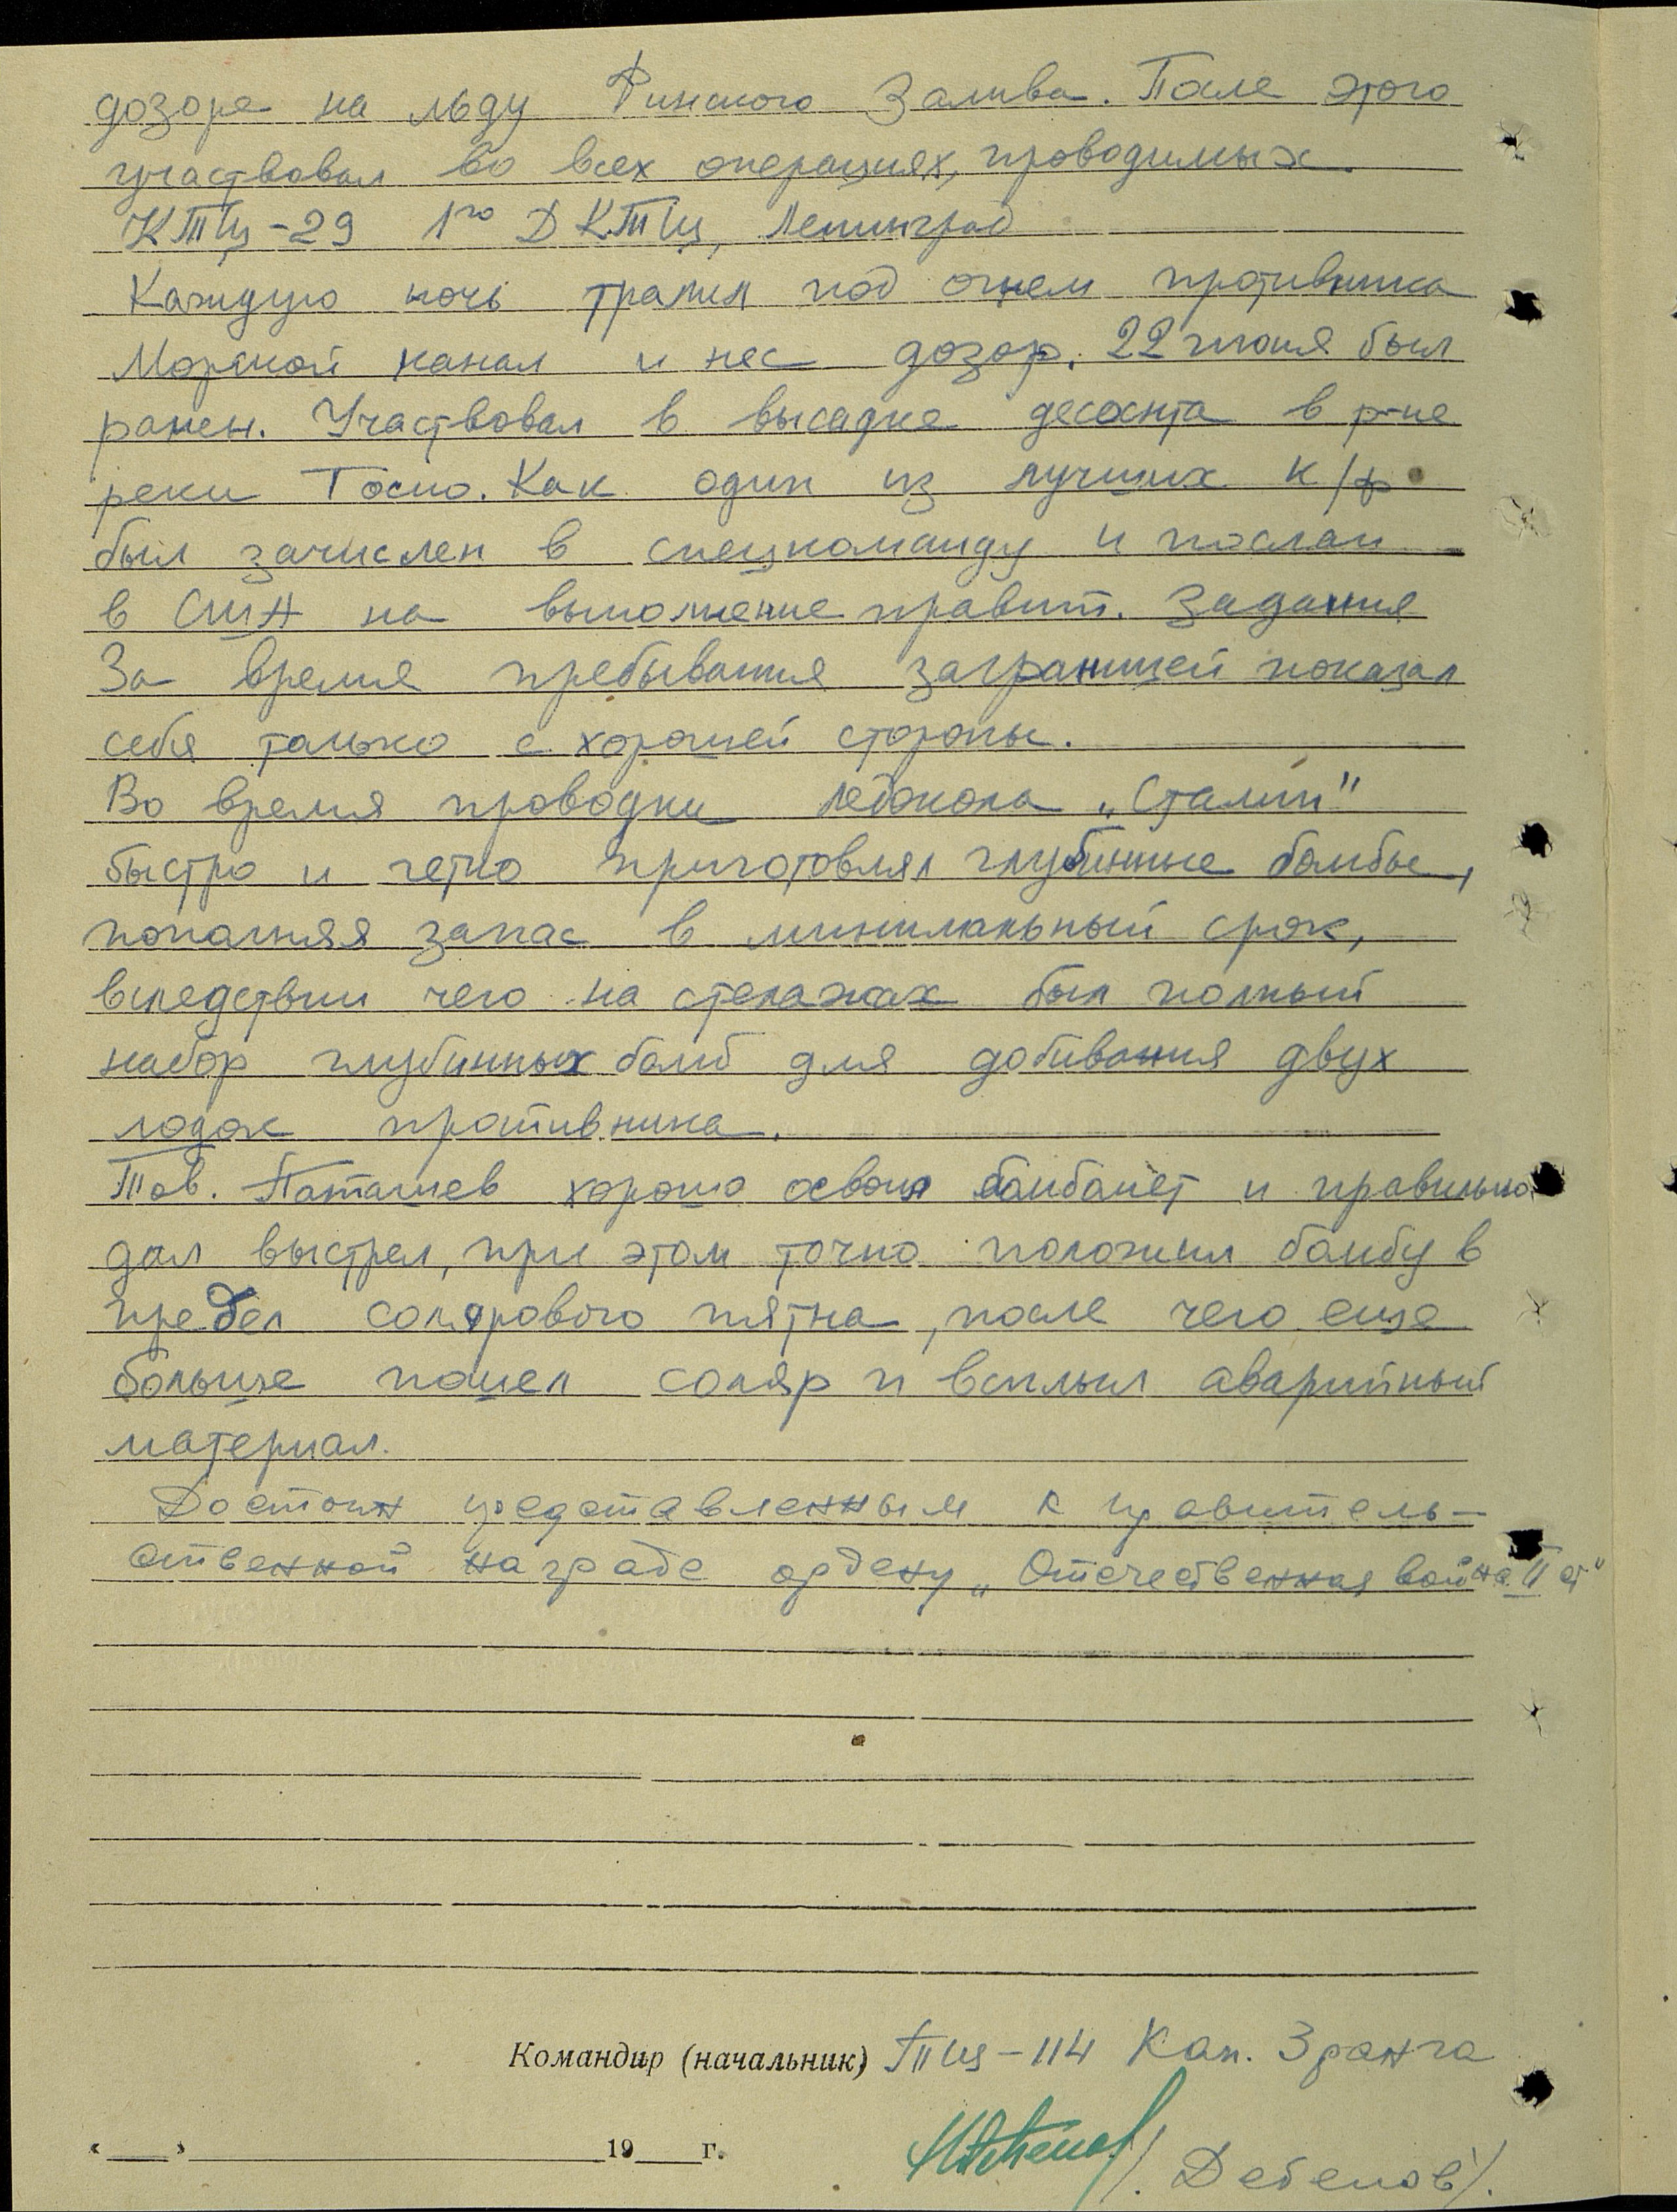 дозоре на льду Финского Залива. После этого
участвовал во всех операциях, проводимых
КТЩ-29 1го ДКТЩ, Ленинград
Каждую ночь тралил под огнем противника
Морской канал и нес дозор. 22 июня был
ранен. Участвовал в высадке десанта в р-не
реки Тосно. Как один из лучших к/ф
был зачислен в спецкоманду и послан
в США на выполнение правит. Задания
За время пребывания заграницей показал
себя только с хорошей стороны.
Во время проводки ледокола „Сталин"
быстро и четко приготовлял глубинные бомбы,
пополняя запас в минимальный срок,
вследствии чего на стелажах был полный
набор глубинных бомб для добивания двух
лодок противника.
Тов. Поташев хорошо освоил бомбомет и правильно
дал выстрел, при этом точно положил бомбу в
предел солярового пятна, после чего еще
больше пошел соляр и всплыл аварийный
материал.
Достоин представленным к правитель-
ственной награде ордену „Отечественная война II ст"
Командир (начальник) ТЩ-114 Кап. 3 ранга
« » 19 г.
/Дебелов/.